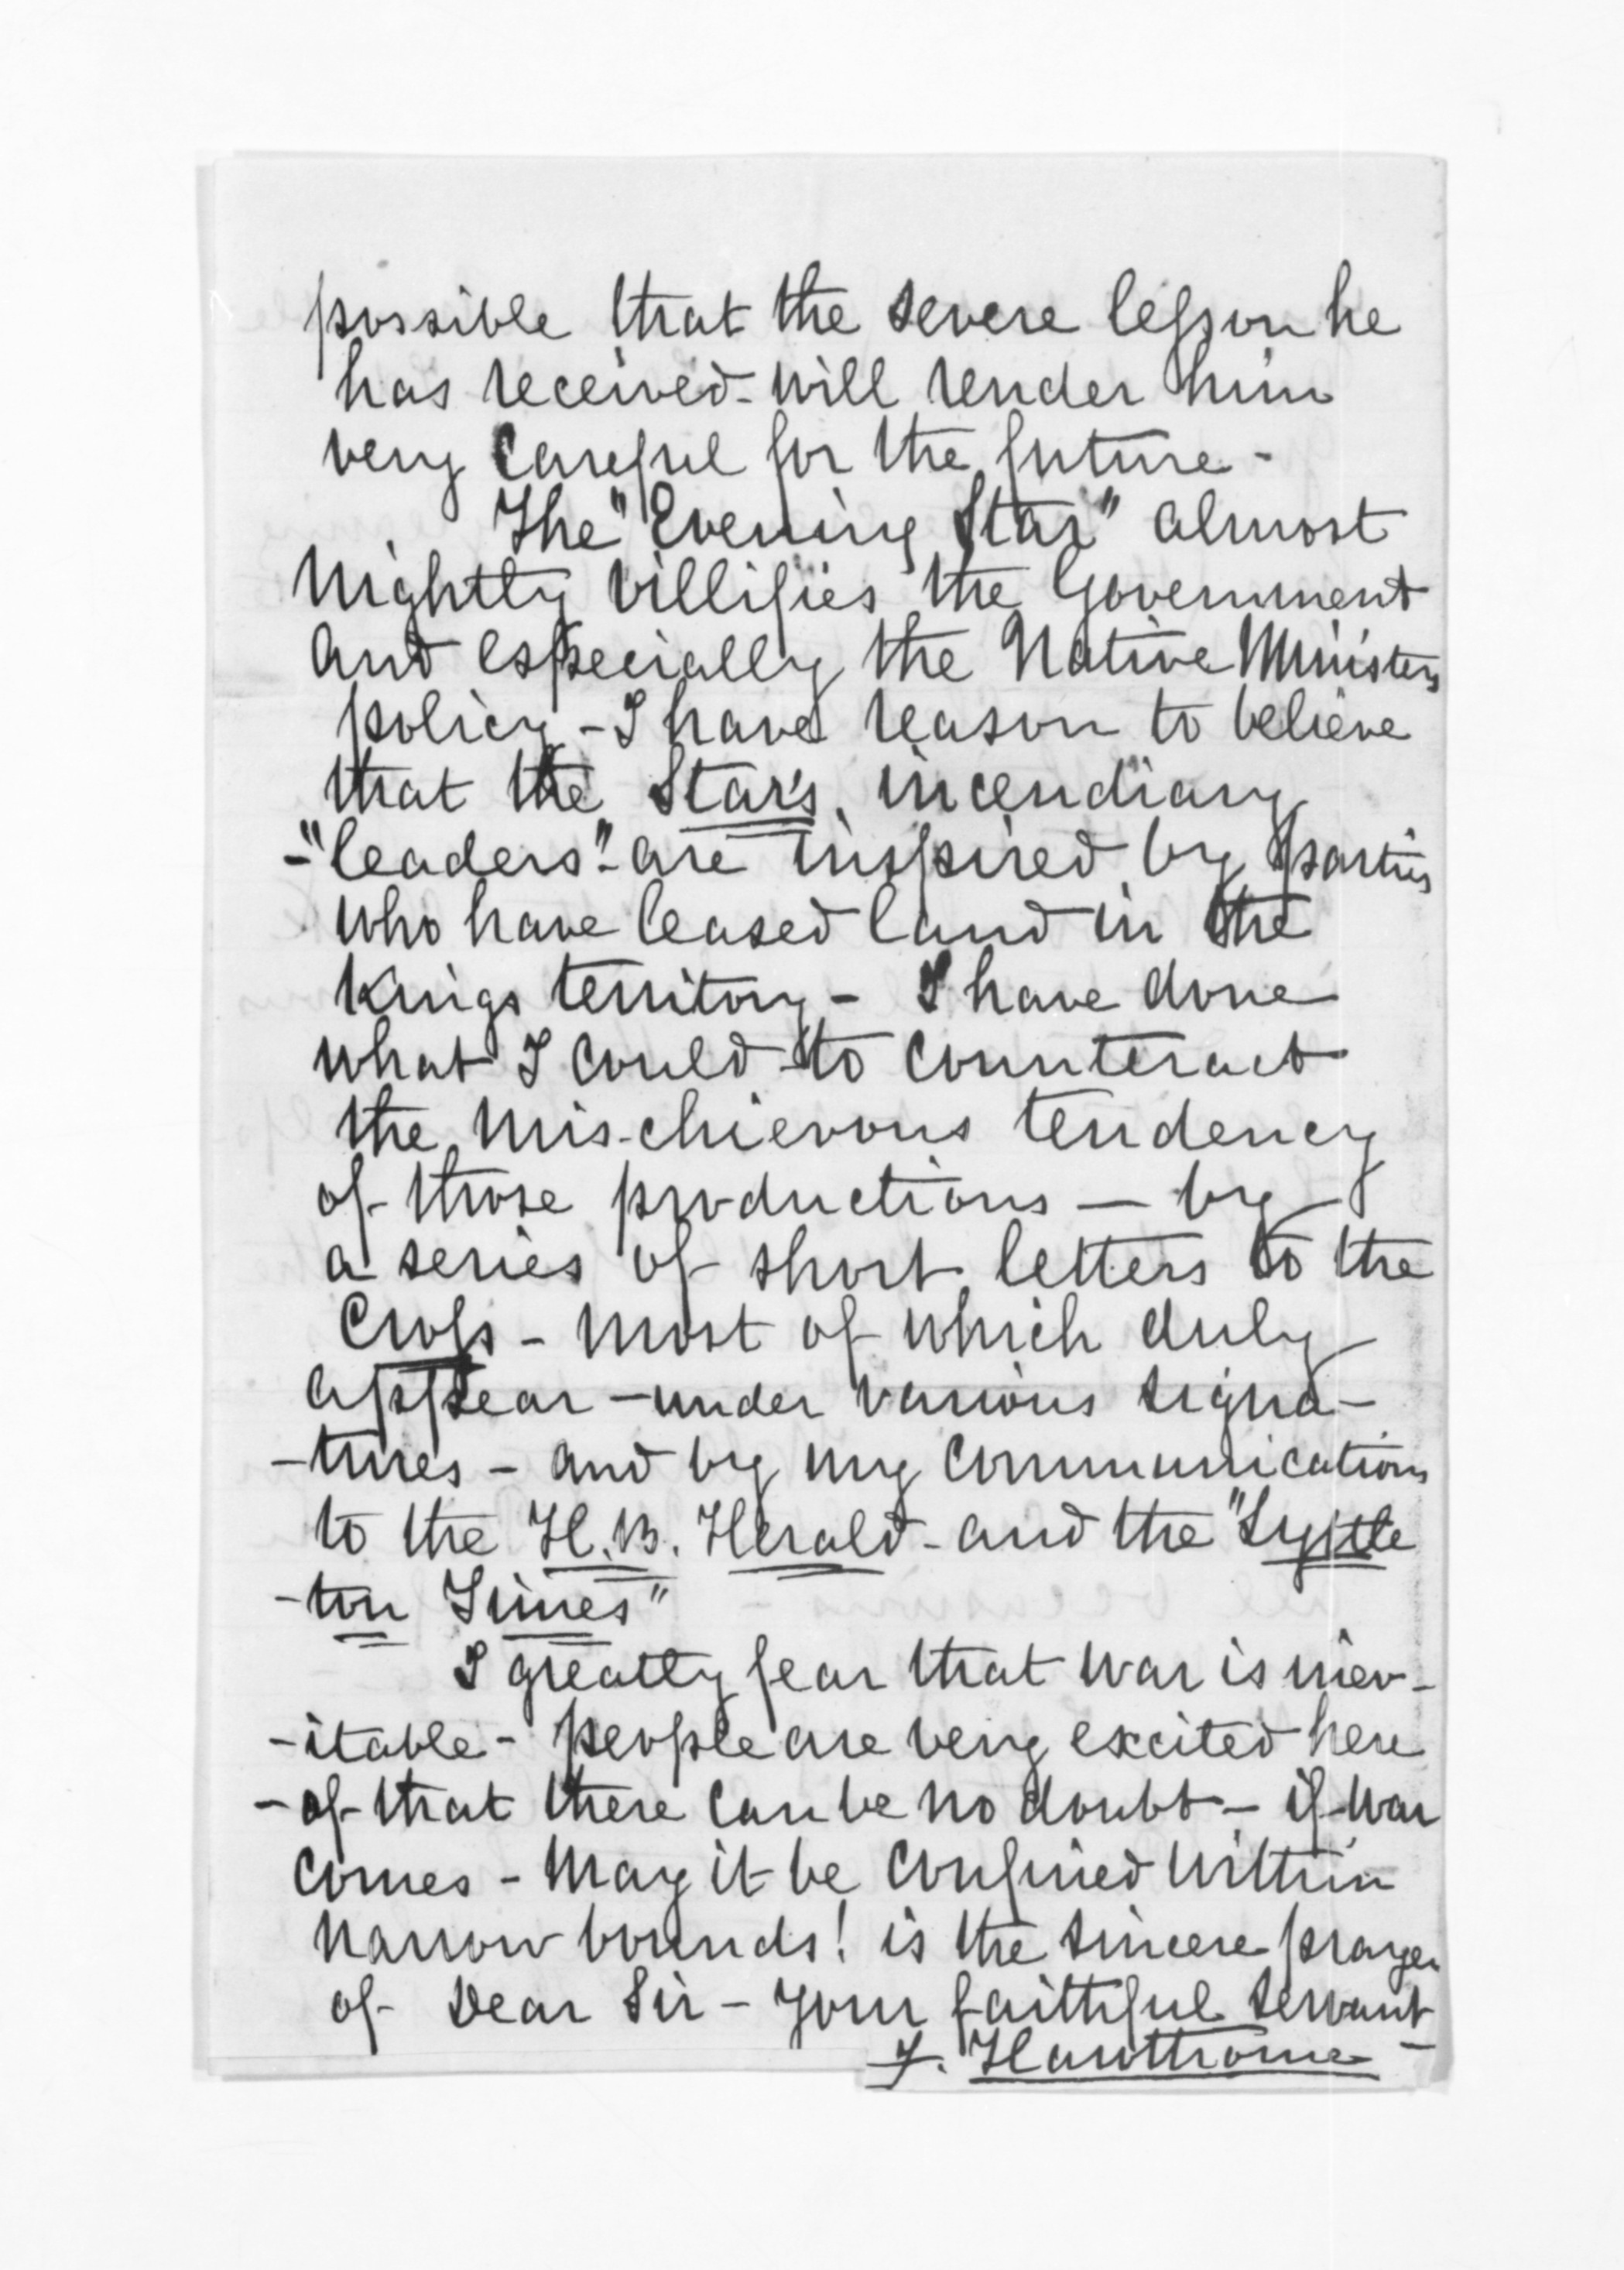 possible that the severe lesson he
has received - will render him
very careful for the future -
The "Evening Star" almost
nightly villifies the Government
and especially the Native Ministers
policy - I have reason to believe
that the Star's incendiary
- "leaders" - are inspired by parties
who have leased land in the
Kings territory - I have done
what I could to counteract
the mis-chievous tendency
of those productions — by
a series of short letters to the
Cross - most of which duly
appear - under various signa-
-tures - and by my communications
to the H.B. Herald - and the "Lyttle
-ton Times"
I greatly fear that war is inev-
-itable - people are very excited here
- of that there can be no doubt - if war
comes - may it be confined within
narrow bounds! is the sincere prayer
of Dear Sir - your faithful servant -
F. Hawthorne